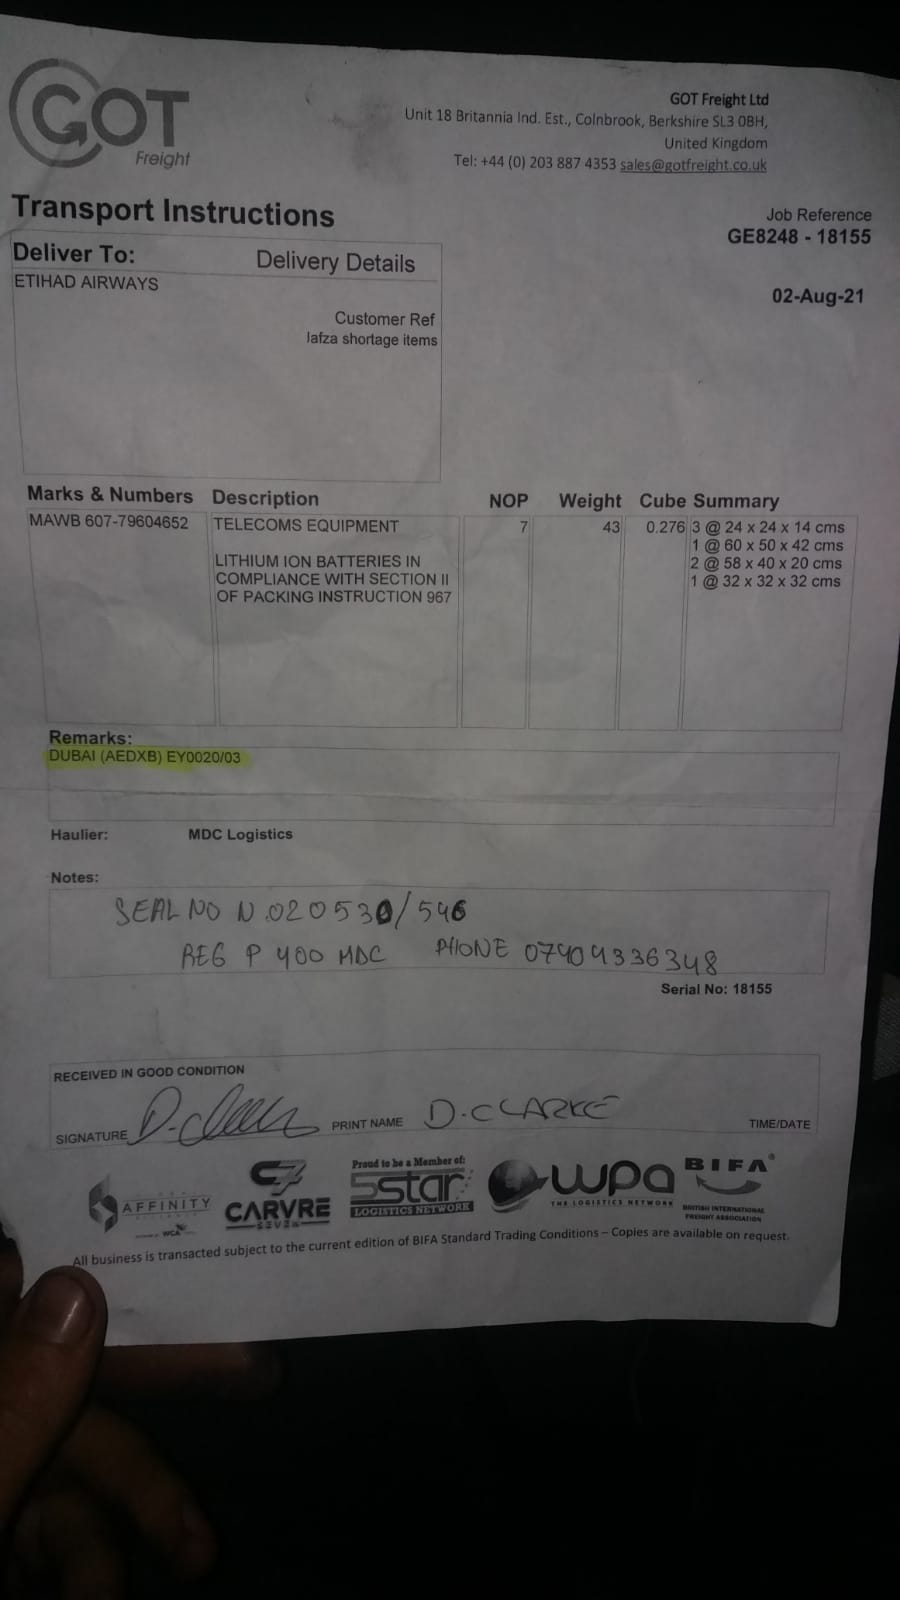 GOT
Freight
GOT Freight Ltd
Unit 18 Britannia Ind. Est., Colnbrook, Berkshire SL3 0BH,
United Kingdom
Tel: +44 (0) 203 887 4353 sales@gotfreight.co.uk
Transport Instructions
Job Reference
GE8248 - 18155
Deliver To: Delivery Details
ETIHAD AIRWAYS
02-Aug-21
Customer Ref
lafza shortage items
Marks & Numbers Description NOP Weight Cube Summary
MAWB 607-79604652 TELECOMS EQUIPMENT 7 43 0.276 3 @ 24 x 24 x 14 cms
1 @ 60 x 50 x 42 cms
LITHIUM ION BATTERIES IN 2 @ 58 x 40 x 20 cms
COMPLIANCE WITH SECTION II 1 @ 32 x 32 x 32 cms
OF PACKING INSTRUCTION 967
Remarks:
DUBAI (AEDXB) EY0020/03
Haulier: MDC Logistics
Notes:
SEAL NO N.020530/546
REG P 400 MDC PHONE 07404336348
Serial No: 18155
RECEIVED IN GOOD CONDITION
SIGNATURE D. PRINT NAME D. CLARKE TIME/DATE
AFFINITY
WCA
CARVRE
SEVEN
Proud to be a Member of:
5star
LOGISTICS NETWORK
wpa
THE LOGISTICS NETWORK
BIFA
BRITISH INTERNATIONAL
FREIGHT ASSOCIATION
All business is transacted subject to the current edition of BIFA Standard Trading Conditions – Copies are available on request.